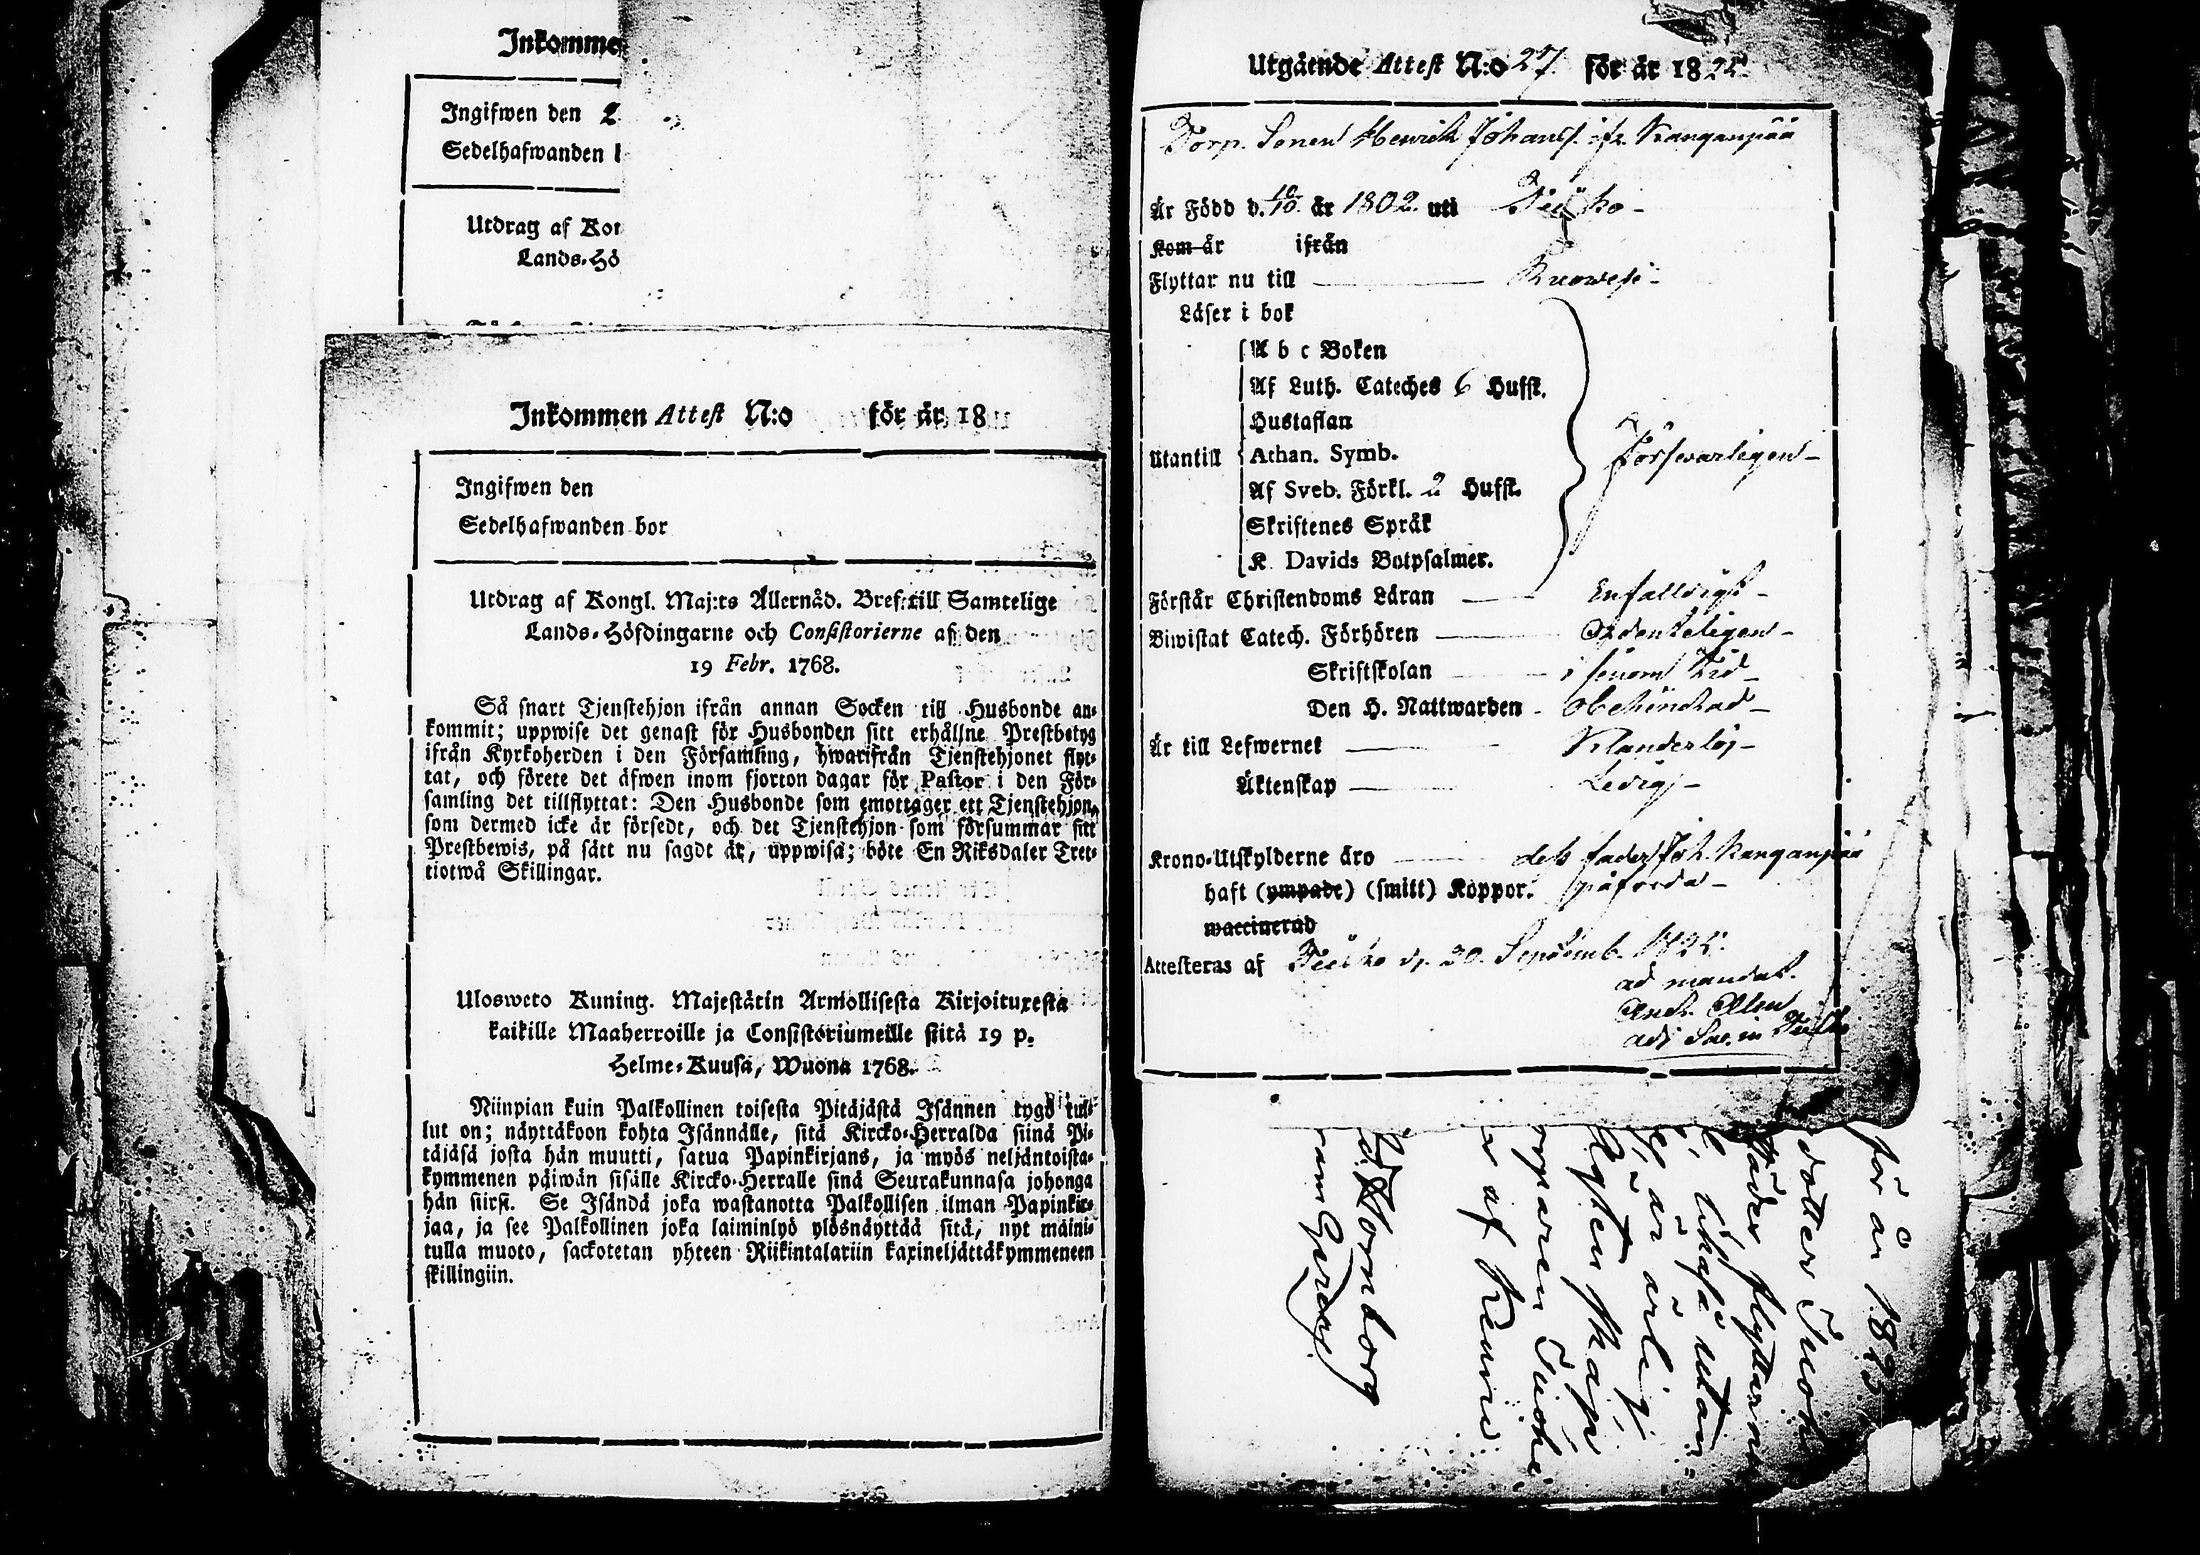 Inkomme
Ingifwen den 2
Sedelhafwanden
Utdrag af Kon
Lands-Hö
Inkommen Attest N:o för år 18
Ingifwen den
Sedelhafwanden bor
Utdrag af Kongl. Maj:ts Allernåd. Bref till Samtelige
Lands-Höfdingarne och Consistorierne af den
19 Febr. 1768.
Så snart Tjenstehjon ifrån annan Socken till Husbonde an-
kommit; uppwise det genast för Husbonden sitt erhållne Prestbetyg
ifrån Kyrkoherden i den Församling, hwarifrån Tjenstehjonet flyt-
tat, och förete det äfwen inom fjorton dagar för Pastor i den För-
samling det tillflyttat: Den Husbonde som emottager ett Tjenstehjon,
som dermed icke är försedt, och det Tjenstehjon som försummar sitt
Prestbewis, på sätt nu sagdt är, uppwisa; böte En Riksdaler Tret-
tiotwå Skillingar.
Ulosweto Kuning. Majestätin Armollisesta Kirjoituxesta
kaikille Maaherroille ja Consistoriumeille siitä 19 p.
Helme-Kuusa, Wuona 1768.
Niinpian kuin Palkollinen toisesta Pitäjästä Isännen tygö tul-
lut on; näyttäkoon kohta Isännälle, sitä Kircko-Herralda siinä Pi-
täjäsä josta hän muutti, saatua Papinkirjans, ja myös neljäntoista-
kymmenen päiwän sisälle Kircko-Herralle sinä Seurakunnasa johonga
hän siirsi. Se Isändä joka wastanotta Palkollisen ilman Papinkir-
jaa, ja see Palkollinen joka laiminlyö ylösnäyttää sitä, nyt maini-
tulla muoto, sackotetan yhteen Riikintalariin kaxineljättäkymmeneen
skillingiin.
Utgående Attest N:o 27. för år 1825.
Torp. Sonen Henrich Johanss. ifr. Kanganpää
Är Född d. 10/10. år 1802. uti
Kom år ifrån
Flyttar nu till Ruowesi
Läser i bok
A b c Boken
Af Luth. Cateches 6 Hufst.
Hustaflan
Utantill Athan. Symb. Försvarligen
Af Sveb. Förkl. 2 Hufst.
Skriftenes Språk
K. Davids Botpsalmer.
Förstår Christendoms Läran Enfalldigt
Biwistat Catech. Förhören Ordenteligen
Skriftskolan i sinom tid
Den H. Nattwarden Obehindrad
Är till Lefwernet Klanderlös
Äktenskap Ledig
Krono-Utskylderne äro dess fader Joh. Kanganpää
haft (ympade) (smitt) Koppor. påförda
waccinerad
Attesteras af d. 30. Septemb. 1825.
ad mandat.
adj Sac. in
för år 182
dotter
flyttar nu
utan
är ärlig
Ägtenskap
af
Bornborg